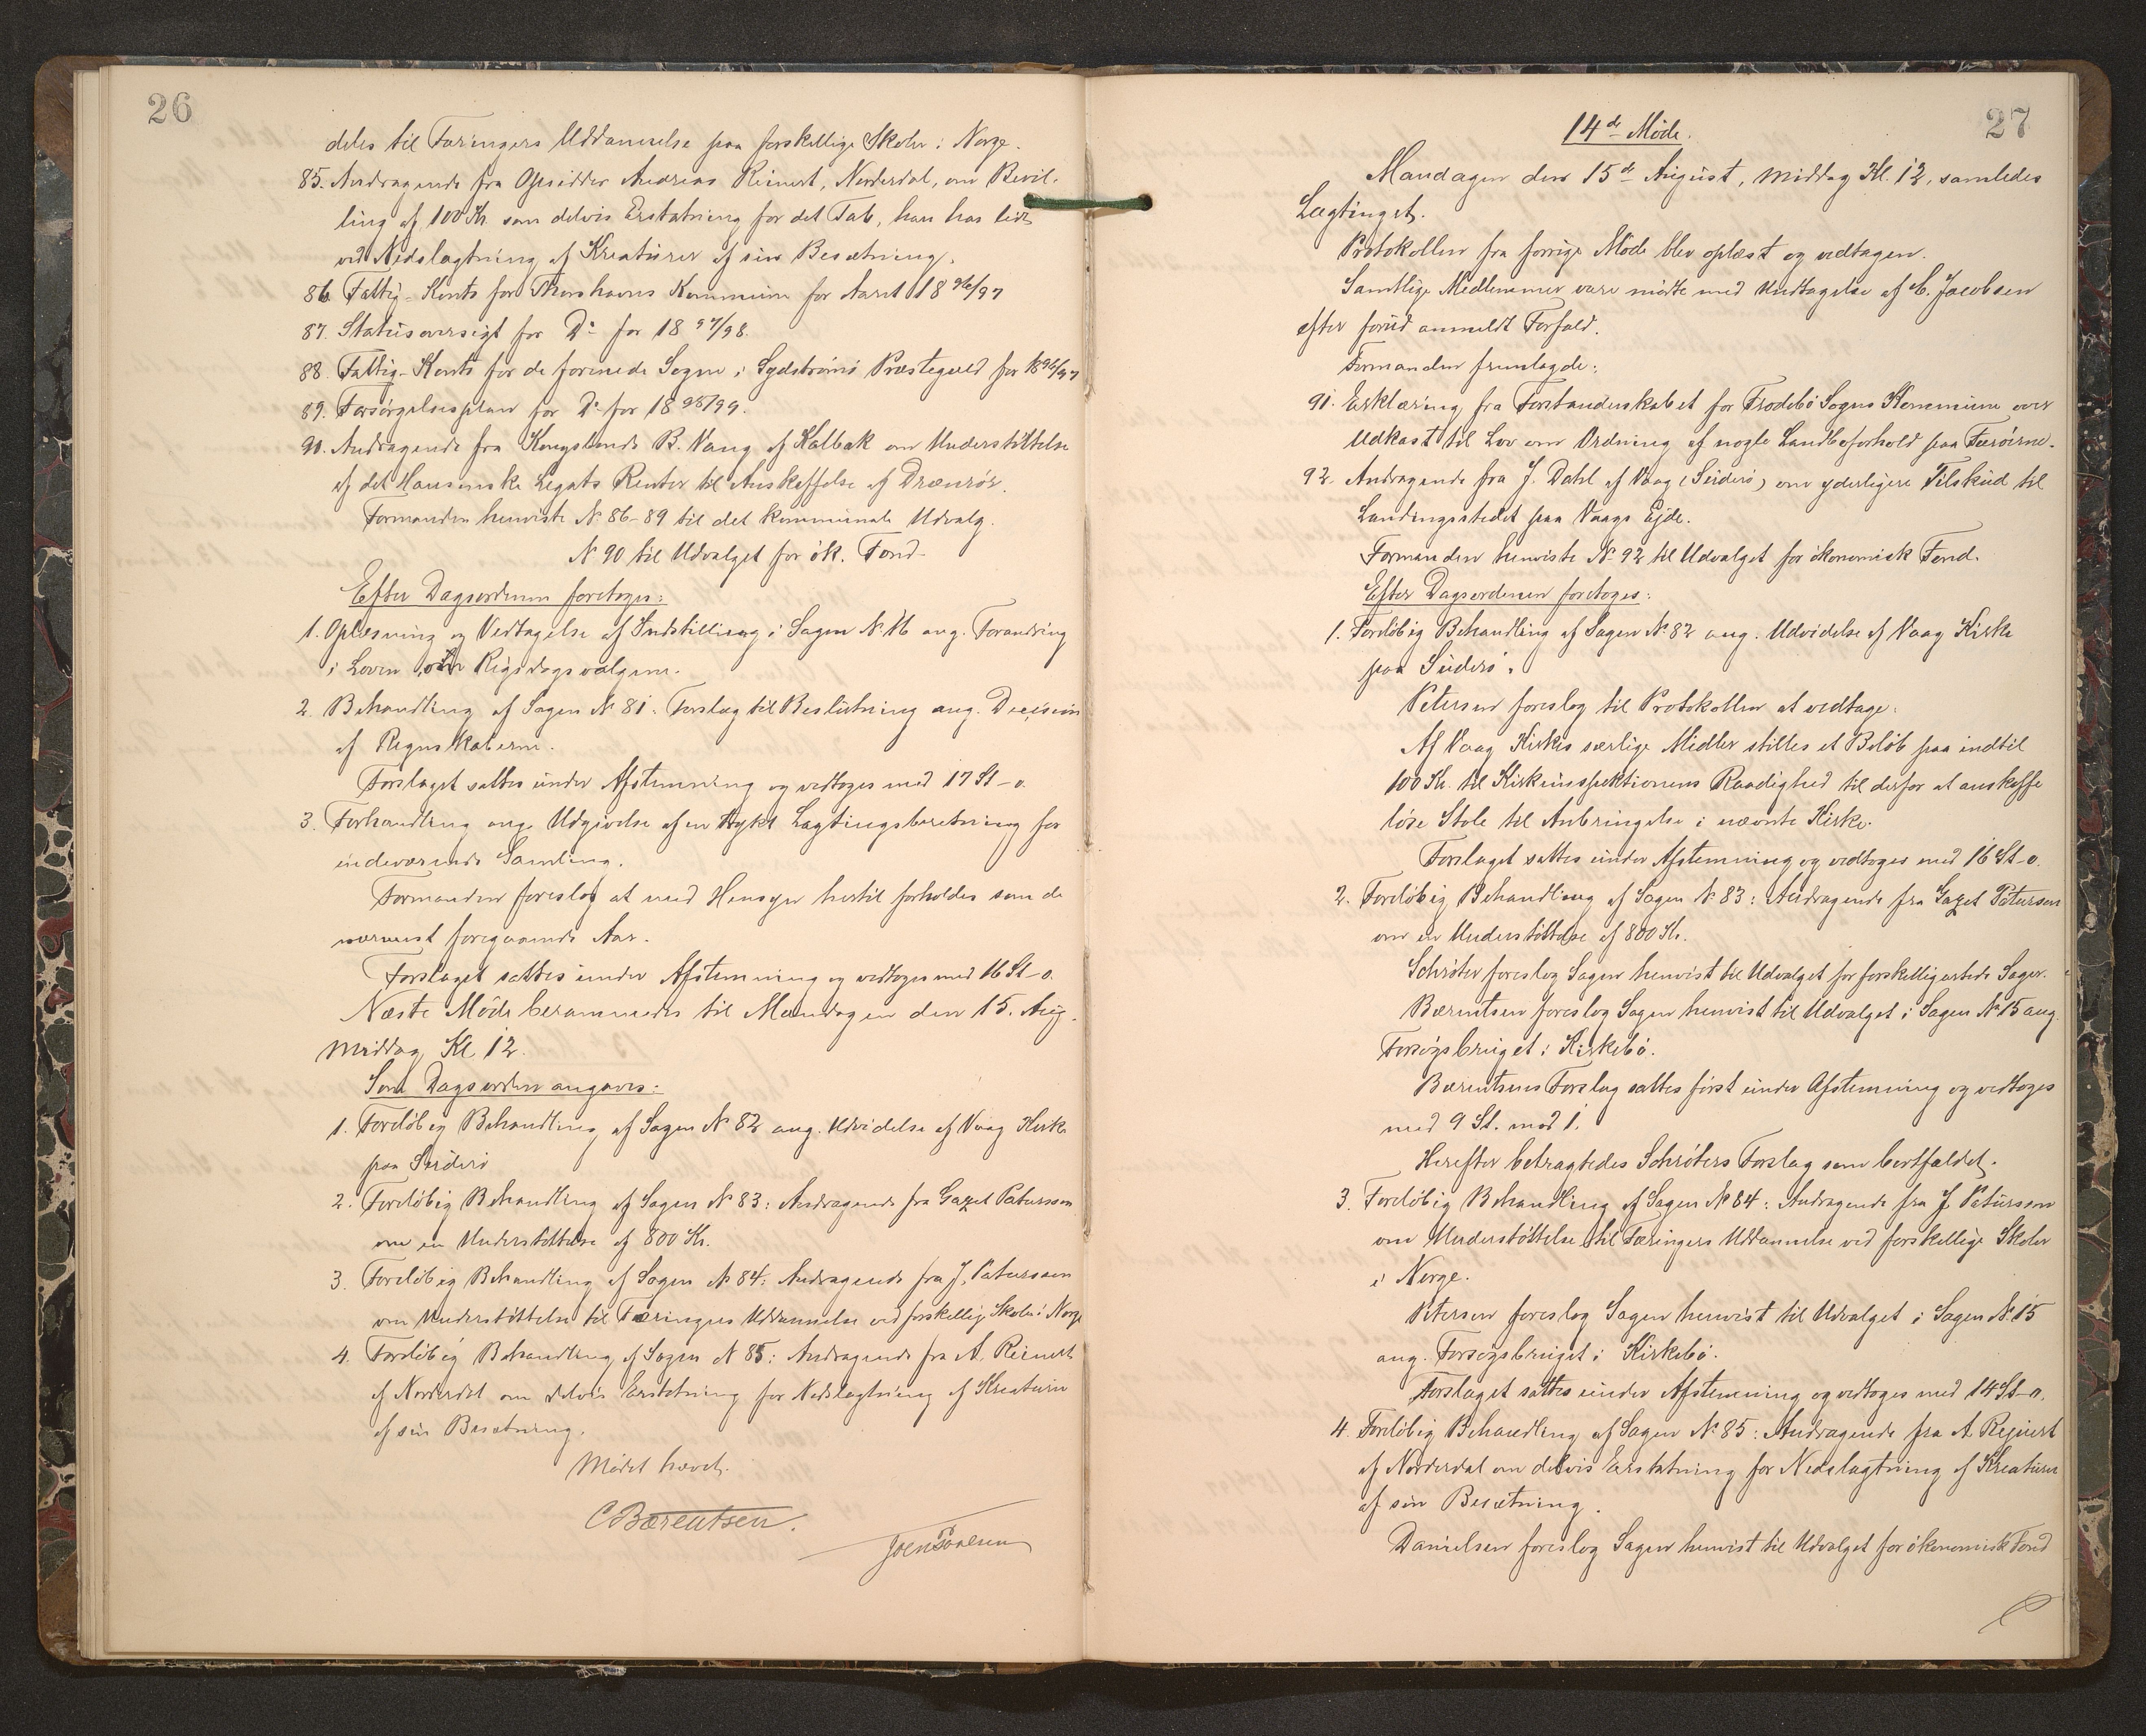 26
deles til Færingers Uddannelse paa forskellige Skoler i Norge.
85. Andragende fra Opsidder Andreas Reinert, Norderdal, om Bevil-
ling af 100 Kr. som delvis Erstatning for det Tab, han har lidt
ved Nedslagtning af Kreaturer af sin Besætning.
86. Fattig-Konto for Thorshavns Kommune for Aaret 1896/97
87. Statusoversigt for Do for 1897/98.
88. Fattig-Konto for de forenede Sogne i Sydstrømø Præstegæld for 1896/97
89. Forsørgelsesplan for Do for 1898/99.
90. Andragende fra Kongsbonde B. Vang af Kalbak om Understøttelse
af det Hansenske Legats Renter til Anskaffelse af Drænrør.
Formanden henviste No 86-89 til det kommunale Udvalg.
No 90 til Udvalget for øk. Fond.
Efter Dagsordenen foretoges:
1. Oplæsning og Vedtagelse af Indstilling i Sagen No 16 ang. Forandring
i Loven om Rigsdagsvalgene.
2. Behandling af Sagen No 81: Forslag til Beslutning ang. Decision
af Regnskaberne.
Forslaget sattes under Afstemning og vedtoges med 17 St - 0.
3. Forhandling ang. Udgivelse af en trykt Lagtingsberetning for
indeværende Samling.
Formanden foreslog at med Hensyn hertil forholdes som de
nærmest foregaaende Aar.
Forslaget sattes under Afstemning og vedtoges med 16 St - 0.
Næste Møde berammedes til Mandagen den 15. Aug.
Middag Kl. 12.
Som Dagsorden angaves:
1. Foreløbig Behandling af Sagen No 82 ang. Udvidelse af Vaag Kirke
paa Suderø
2. Foreløbig Behandling af Sagen No 83: Andragende fra Gazet Patursson
om en Understøttelse af 800 Kr.
3. Foreløbig Behandling af Sagen No 84: Andragende fra J. Patursson
om Understøttelse til Færingers Uddannelse ved forskellig Skoler i Norge
4. Foreløbig Behandling af Sagen No 85: Andragende fra A. Reinert
af Norderdal om delvis Erstatning for Nedslagtning af Kreaturer
af sin Besætning.
Mødet hævet.
C Bærentsen.
Joen Poulsen
27
14de Møde.
Mandagen den 15de August, Middag Kl. 12, samledes
Lagtinget.
Protokollen fra forrige Møde blev oplæst og vedtagen.
Samtlige Medlemmer vare mødte med Undtagelse af C. Jacobsen
efter forud anmeldt Forfald.
Formanden fremlagde:
91. Erklæring fra Forstanderskabet for Frodebø Sogns Kommune over
Udkast til Lov om Ordning af nogle Landboforhold paa Færøerne.
92. Andragende fra J. Dahl af Vaag (Suderø) om yderligere Tilskud til
Landingsstedet paa Vaags Ejde.
Formanden henviste No 92 til Udvalget for økonomisk Fond.
Efter Dagsordenen foretoges:
1. Foreløbig Behandling af Sagen No 82 ang. Udvidelse af Vaag Kirke
paa Suderø.
Petersen foreslog til Protokollen at vedtage:
Af Vaag Kirkes særlige Midler stilles et Beløb paa indtil
100 Kr. til Kirkeinspektionens Raadighed til derfor at anskaffe
løse Stole til Anbringelse i nævnte Kirke.
Forslaget sattes under Afstemning og vedtoges med 16 St - 0.
2. Foreløbig Behandling af Sagen No 83: Andragende fra Gazet Patursson
om en Understøttelse af 800 Kr.
Schrøter foreslog Sagen henvist til Udvalget for forskelligartede Sager.
Bærentsen foreslog Sagen henvist til Udvalget i Sagen No 15 ang.
Forsøgsbruget i Kirkebø.
Bærentsens Forslag sattes først under Afstemning og vedtoges
med 9 St. mod 1.
Herefter betragtedes Schrøters Forslag som bortfaldet.
3. Foreløbig Behandling af Sagen No 84: Andragende fra J. Patursson
om Understøttelse til Færingers Uddannelse ved forskellige Skoler
i Norge.
Petersen foreslog Sagen henvist til Udvalget i Sagen No 15
ang. Forsøgsbruget i Kirkebø.
Forslaget sattes under Afstemning og vedtoges med 14 St - 0.
4. Foreløbig Behandling af Sagen No 85: Andragende fra A. Rejnert
af Norderdal om delvis Erstatning for Nedslagtning af Kreaturer
af sin Besætning.
Danielsen foreslog Sagen henvist til Udvalget for økonomisk Fond